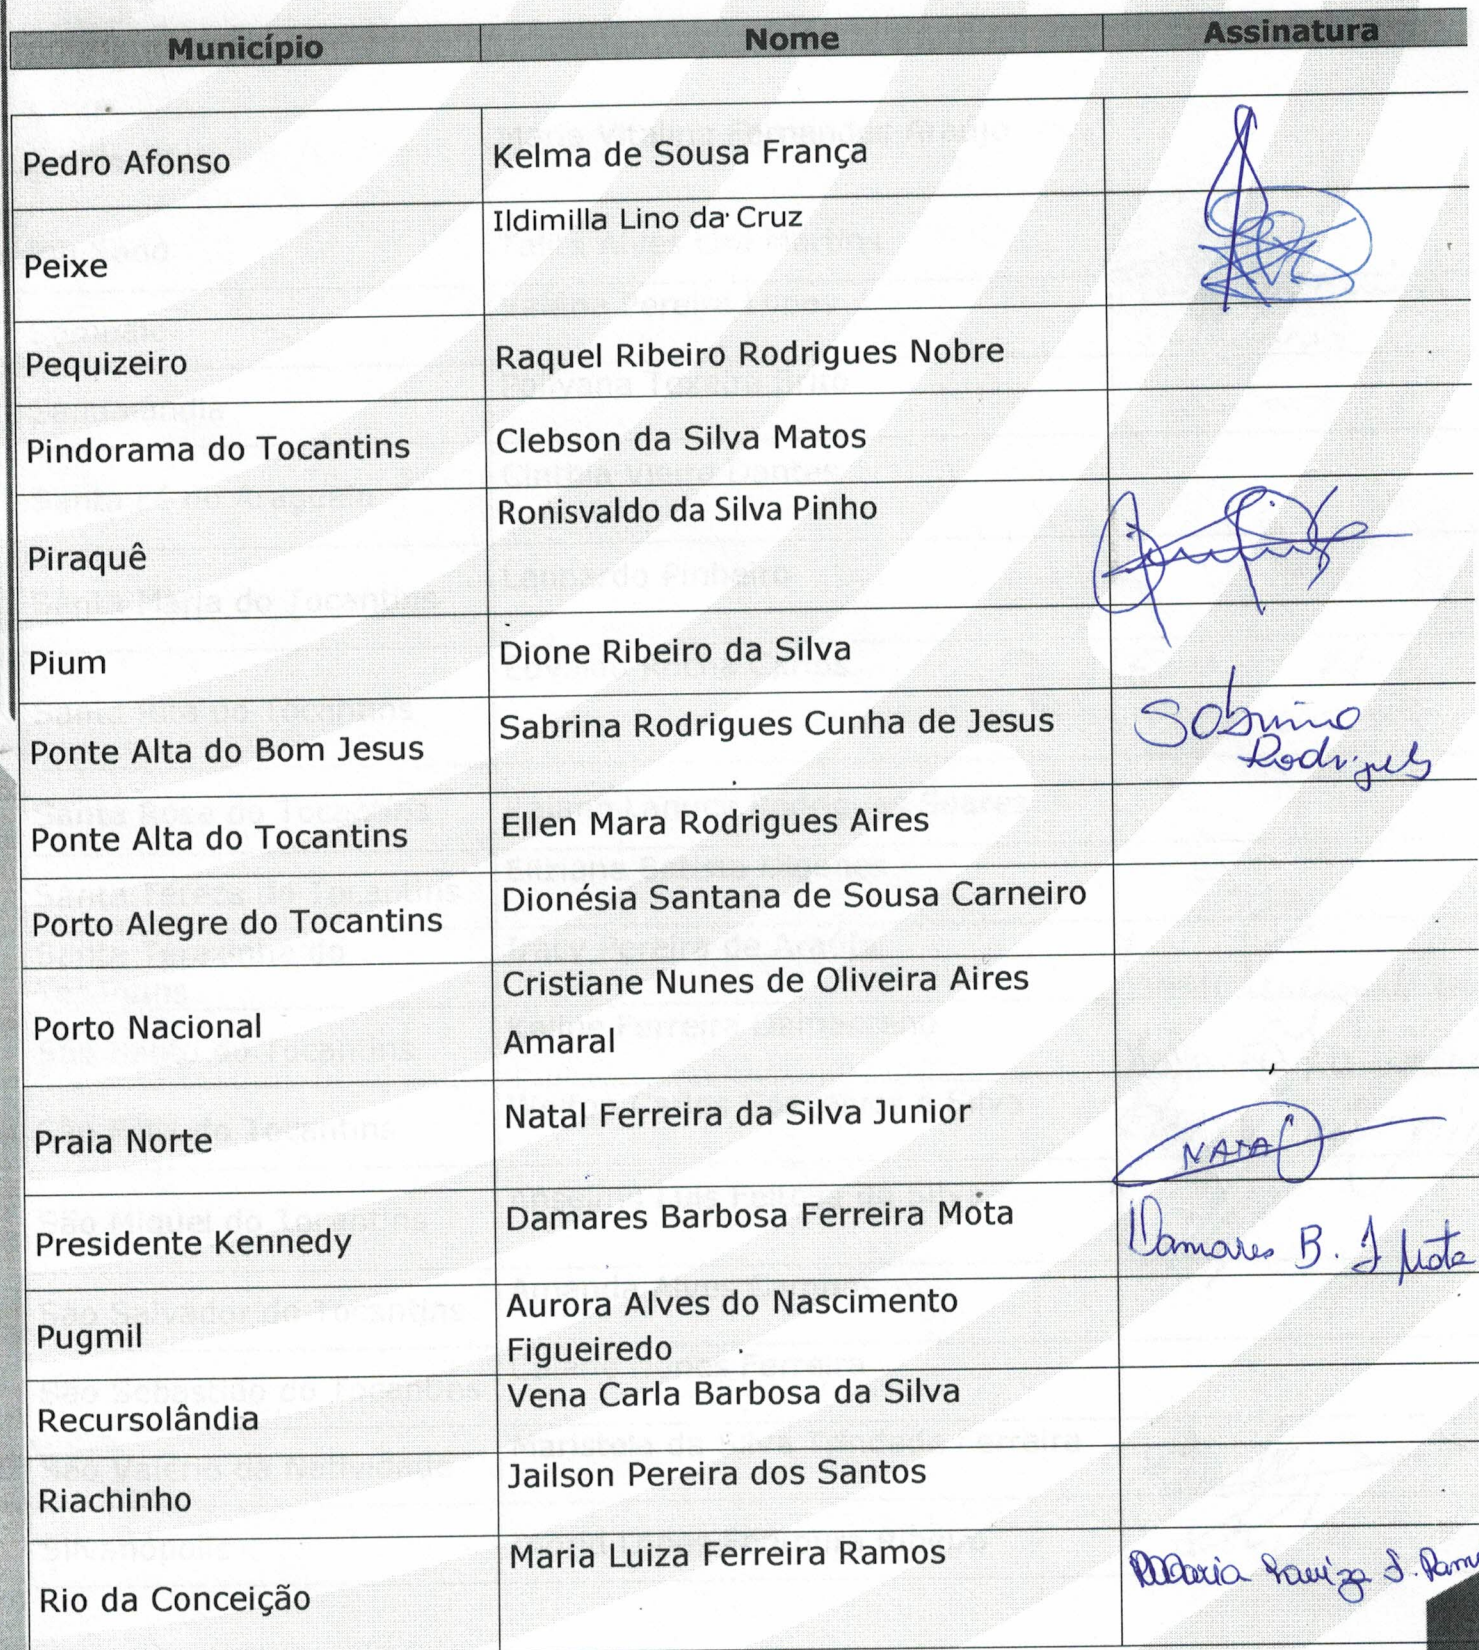 Município Nome Assinatura
Pedro Afonso Kelma de Sousa França
Peixe Ildimilla Lino da Cruz
Pequizeiro Raquel Ribeiro Rodrigues Nobre
Pindorama do Tocantins Clebson da Silva Matos
Piraquê Ronisvaldo da Silva Pinho
Pium Dione Ribeiro da Silva
Ponte Alta do Bom Jesus Sabrina Rodrigues Cunha de Jesus Sabrina
Rodrigues
Ponte Alta do Tocantins Ellen Mara Rodrigues Aires
Porto Alegre do Tocantins Dionésia Santana de Sousa Carneiro
Porto Nacional Cristiane Nunes de Oliveira Aires
Amaral
Praia Norte Natal Ferreira da Silva Junior NATAL
Presidente Kennedy Damares Barbosa Ferreira Mota Damares B. F Mota
Pugmil Aurora Alves do Nascimento
Figueiredo
Recursolândia Vena Carla Barbosa da Silva
Riachinho Jailson Pereira dos Santos
Rio da Conceição Maria Luiza Ferreira Ramos Maria Luiza F. Ram